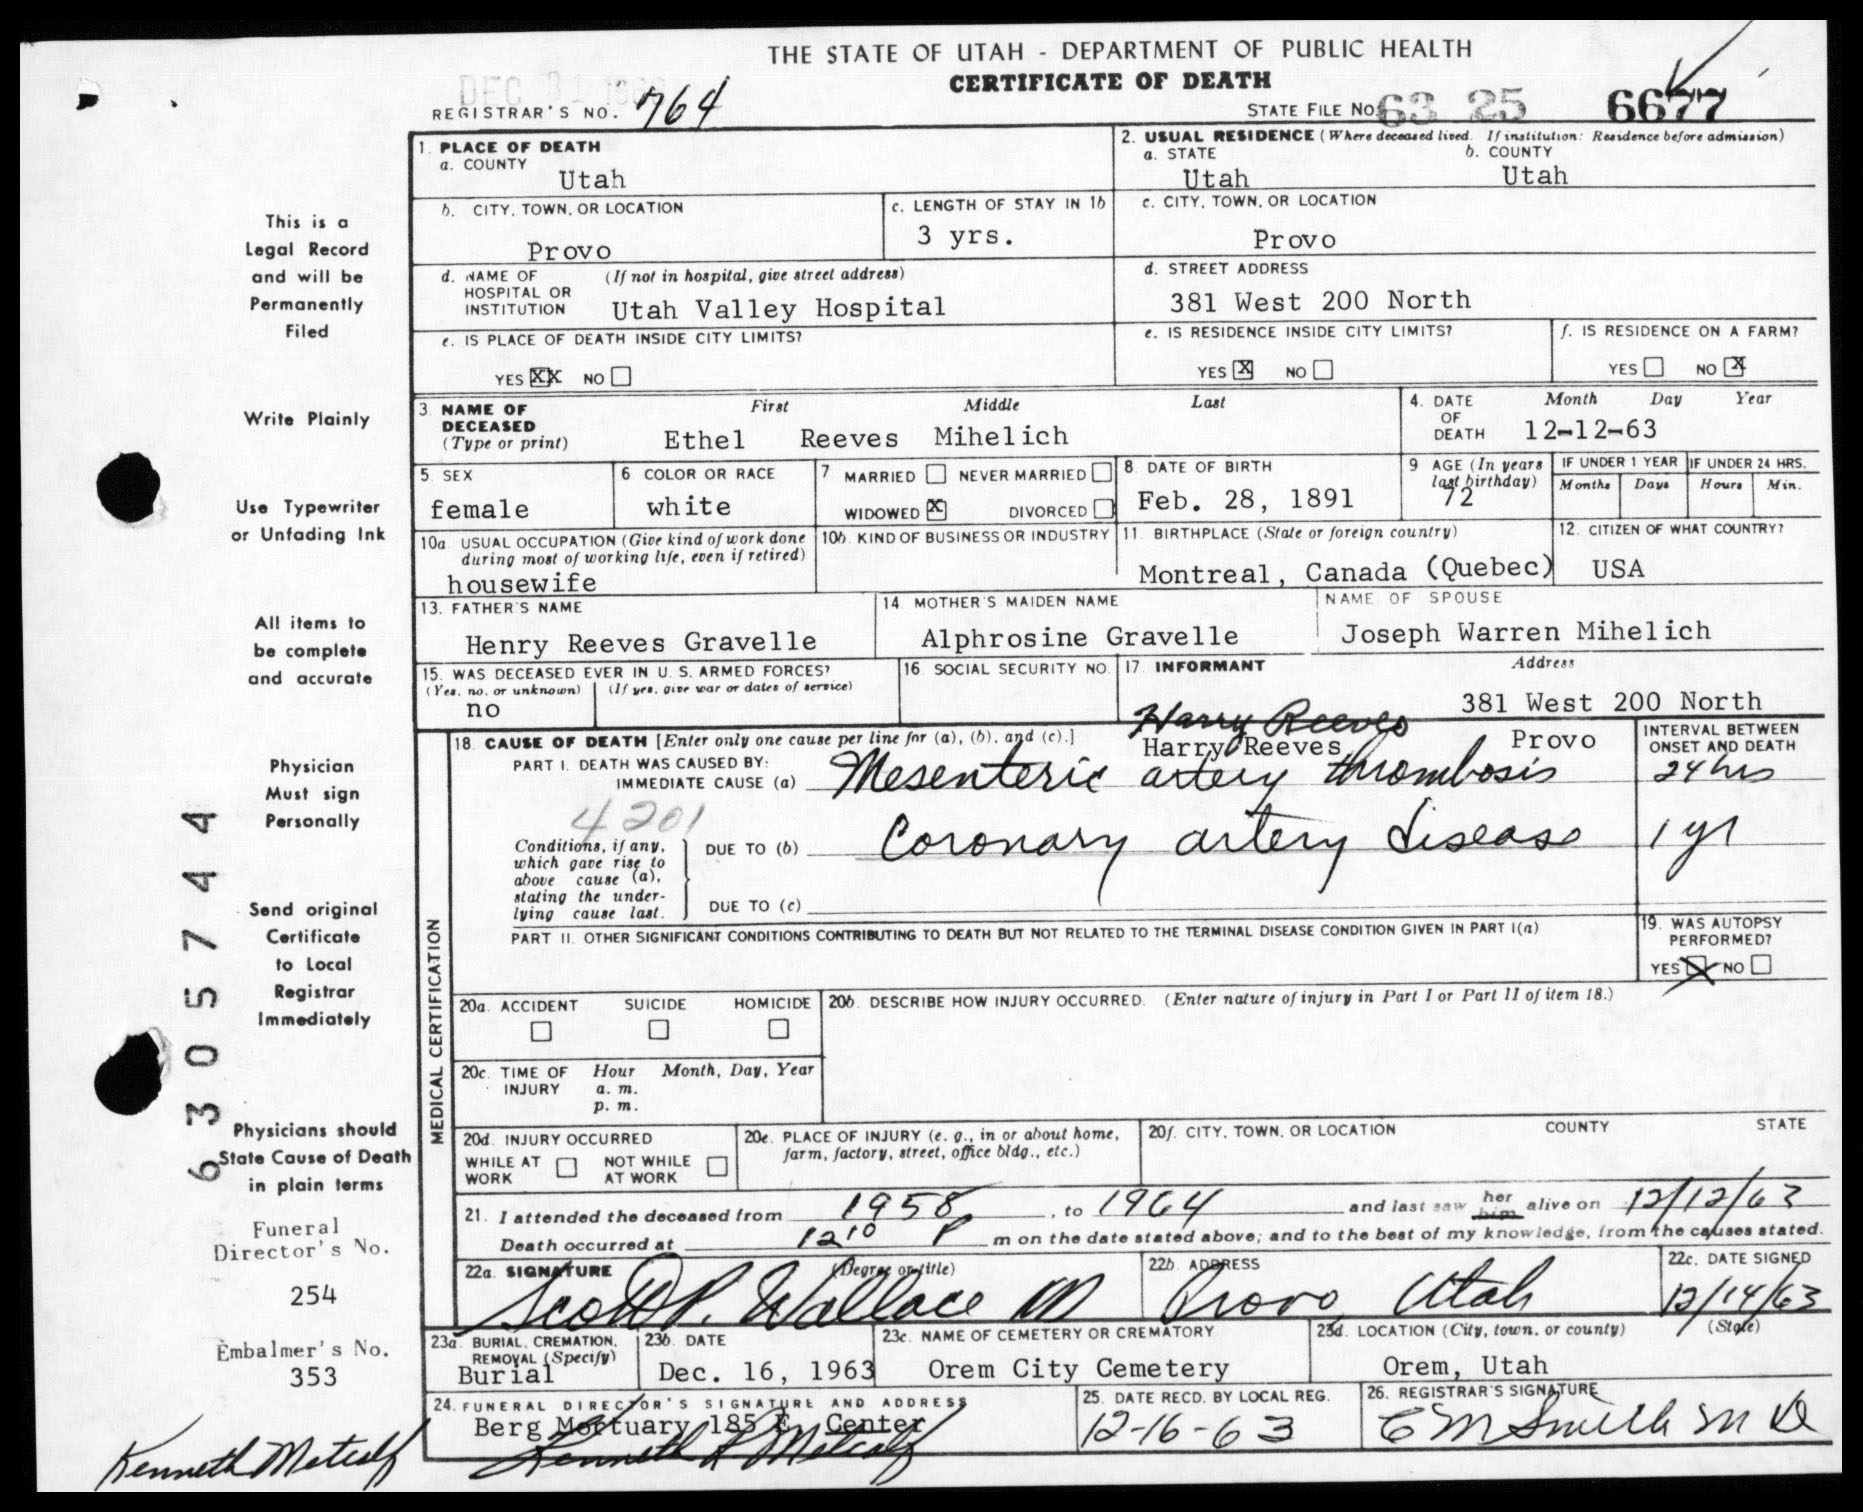 THE STATE OF UTAH - DEPARTMENT OF PUBLIC HEALTH
CERTIFICATE OF DEATH
REGISTRAR'S NO. 764
STATE FILE NO. 63 25 6677
1. PLACE OF DEATH
a. COUNTY
Utah
2. USUAL RESIDENCE (Where deceased lived. If institution: Residence before admission)
a. STATE b. COUNTY
Utah Utah
b. CITY, TOWN, OR LOCATION
Provo
c. LENGTH OF STAY IN 1b
3 yrs.
c. CITY, TOWN, OR LOCATION
Provo
d. NAME OF HOSPITAL OR INSTITUTION (If not in hospital, give street address)
Utah Valley Hospital
d. STREET ADDRESS
381 West 200 North
e. IS PLACE OF DEATH INSIDE CITY LIMITS?
YES XX NO
e. IS RESIDENCE INSIDE CITY LIMITS?
YES X NO
f. IS RESIDENCE ON A FARM?
YES NO X
3. NAME OF DECEASED (Type or print)
First Middle Last
Ethel Reeves Mihelich
4. DATE OF DEATH Month Day Year
12-12-63
5. SEX
female
6 COLOR OR RACE
white
7 MARRIED NEVER MARRIED
WIDOWED X DIVORCED
8. DATE OF BIRTH
Feb. 28, 1891
9 AGE (In years last birthday)
72
IF UNDER 1 YEAR IF UNDER 24 HRS.
Months Days Hours Min.
10a. USUAL OCCUPATION (Give kind of work done during most of working life, even if retired)
housewife
10b. KIND OF BUSINESS OR INDUSTRY
11. BIRTHPLACE (State or foreign country)
Montreal, Canada (Quebec)
12. CITIZEN OF WHAT COUNTRY?
USA
13. FATHER'S NAME
Henry Reeves Gravelle
14 MOTHER'S MAIDEN NAME
Alphrosine Gravelle
NAME OF SPOUSE
Joseph Warren Mihelich
15. WAS DECEASED EVER IN U. S. ARMED FORCES?
(Yes, no, or unknown) (If yes, give war or dates of service)
no
16. SOCIAL SECURITY NO.
17. INFORMANT Address
381 West 200 North
Harry Reeves
Harry Reeves Provo
MEDICAL CERTIFICATION
18. CAUSE OF DEATH [Enter only one cause per line for (a), (b), and (c).]
INTERVAL BETWEEN ONSET AND DEATH
PART I. DEATH WAS CAUSED BY:
IMMEDIATE CAUSE (a) Mesenteric artery thrombosis 24 hrs
4201
Conditions, if any, which gave rise to above cause (a), stating the underlying cause last.
DUE TO (b) Coronary artery disease 1 yr
DUE TO (c)
PART II. OTHER SIGNIFICANT CONDITIONS CONTRIBUTING TO DEATH BUT NOT RELATED TO THE TERMINAL DISEASE CONDITION GIVEN IN PART I(a)
19. WAS AUTOPSY PERFORMED?
YES X NO
20a. ACCIDENT SUICIDE HOMICIDE
20b. DESCRIBE HOW INJURY OCCURRED. (Enter nature of injury in Part I or Part II of item 18.)
20c. TIME OF INJURY Hour Month, Day, Year
a. m.
p. m.
20d. INJURY OCCURRED
WHILE AT WORK NOT WHILE AT WORK
20e. PLACE OF INJURY (e. g., in or about home, farm, factory, street, office bldg., etc.)
20f. CITY, TOWN, OR LOCATION COUNTY STATE
21. I attended the deceased from 1958, to 1964 and last saw her him alive on 12/12/63
Death occurred at 12 10 P m on the date stated above; and to the best of my knowledge, from the causes stated.
22a. SIGNATURE (Degree or title)
Scott P. Wallace MD
22b. ADDRESS
Provo, Utah
22c. DATE SIGNED
12/14/63
23a. BURIAL, CREMATION, REMOVAL (Specify)
Burial
23b. DATE
Dec. 16, 1963
23c. NAME OF CEMETERY OR CREMATORY
Orem City Cemetery
23d. LOCATION (City, town, or county) (State)
Orem, Utah
24. FUNERAL DIRECTOR'S SIGNATURE AND ADDRESS
Berg Mortuary 185 E. Center
Kenneth R Metcalf
25. DATE RECD. BY LOCAL REG.
12-16-63
26. REGISTRAR'S SIGNATURE
C M Smith M D
This is a
Legal Record
and will be
Permanently
Filed
Write Plainly
Use Typewriter
or Unfading Ink
All items to
be complete
and accurate
Physician
Must sign
Personally
Send original
Certificate
to Local
Registrar
Immediately
Physicians should
State Cause of Death
in plain terms
Funeral
Director's No.
254
Embalmer's No.
353
Kenneth Metcalf
6305744